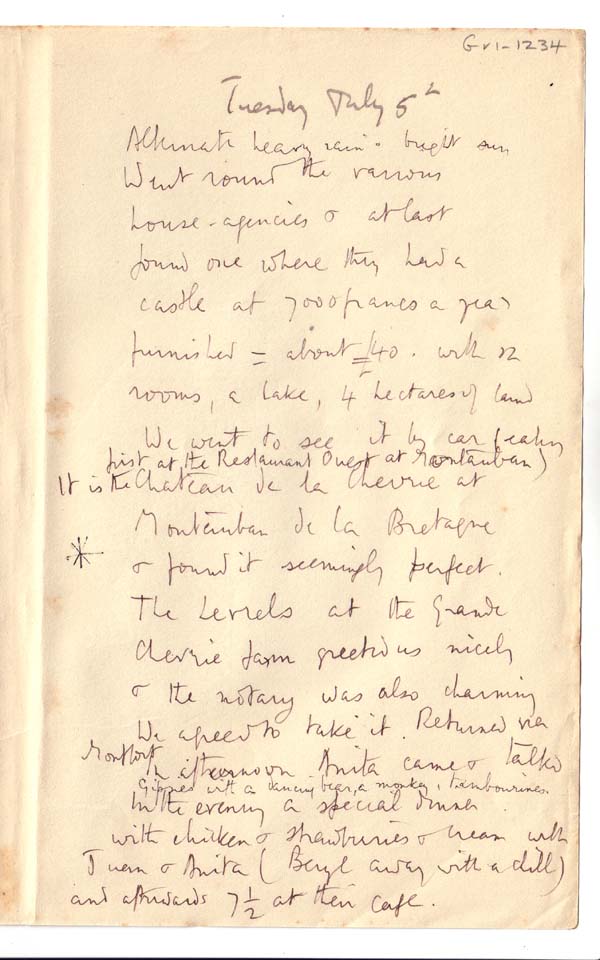 Gv1-1234
Tuesday July 5th
Alternate heavy rain & bright sun
Went round the various
house-agencies & at last
found one where they had a
castle at 7000 francs a year
furnished = about £40. with 12
rooms, a lake, 4 hectares of land
We went to see it by car (eating
first at the Restaurant Ouest at Montauban)
It is the Chateau de la Chevrie at
Montauban de la Bretagne
& found it seemingly perfect.
The Levrels at the Grande
Chevrie farm greeted us nicely
& the notary was also charming
We agreed to take it. Returned via
Montfort
In afternoon Anita came & talked
Gipsies with a dancing bear, a monkey, tambourines.
In the evening a special dinner
with chicken & strawburies & cream with
Juan & Anita (Beryl away with a chill)
and afterwards 7½ at their café.